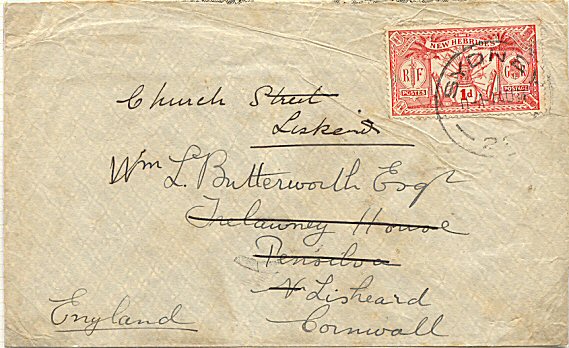 NEW HEBRIDES
R F
G R
POSTES
1d
POSTAGE
SYDNEY
Church Street
Liskeard
Wm L. Butterworth Esqr
Trelawney House
Pensilva
Nr Liskeard
Cornwall
England